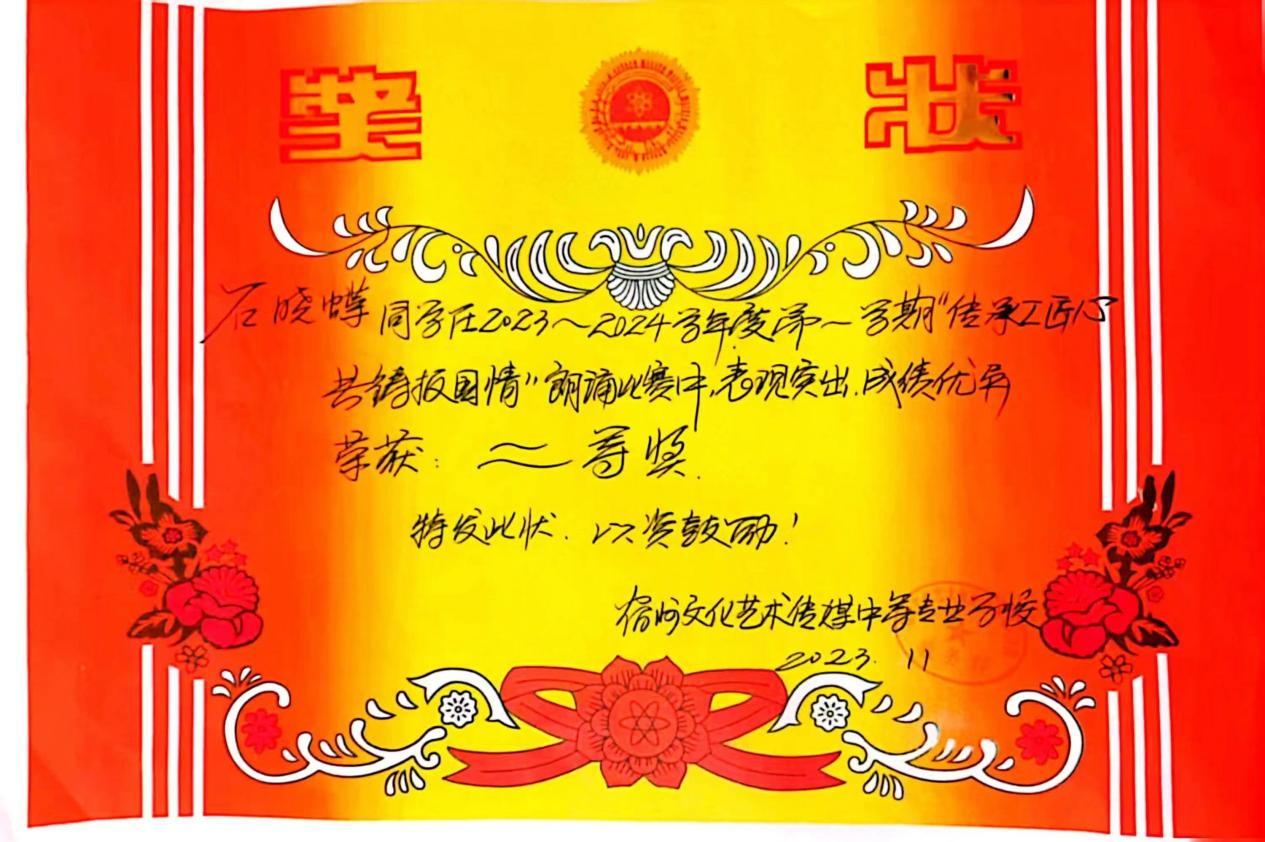 奖状
石晓蝶同学在2023~2024学年度第一学期"传承工匠心
共铸报国情"朗诵比赛中,表现突出.成绩优异
荣获:二等奖.
特发此状.以资鼓励!
宿州文化艺术传媒中等专业学校
2023.11